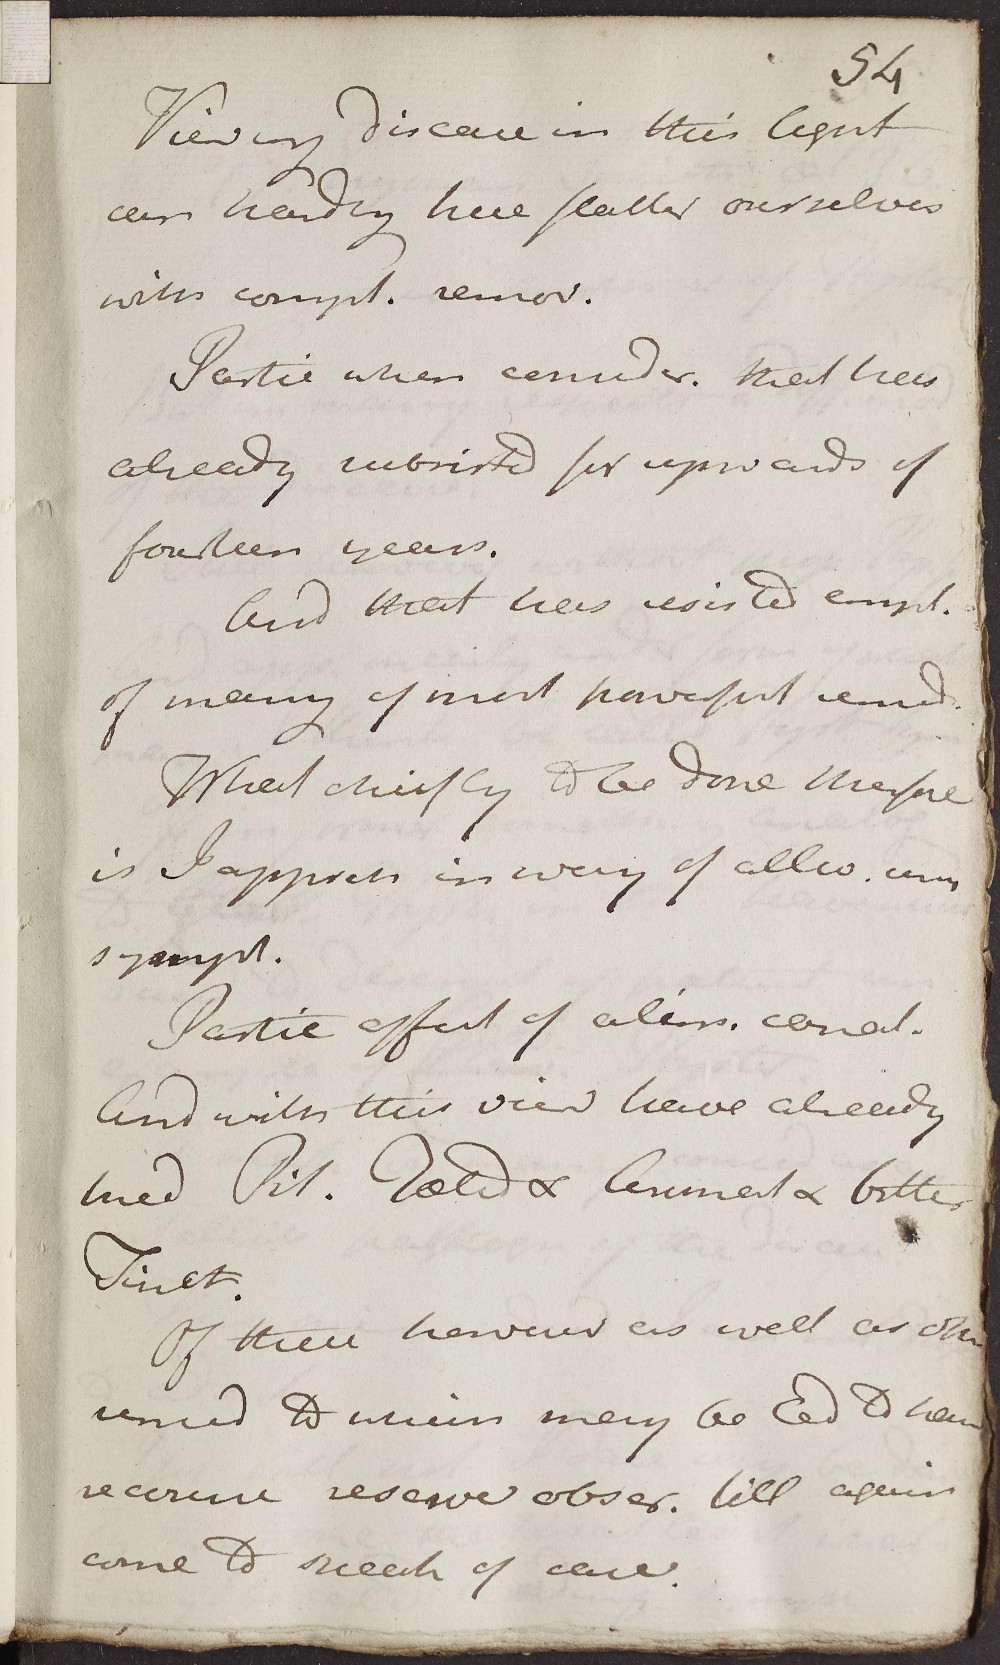 54
Viewing disease in this light
can hardly here flatter ourselves
with compl. remov.
Partic when consider. that has
already subsisted for upwards of
fourteen years.
And that has resisted empl.
of many of most powerful remed.
What chiefly to be done therfore
is I appreh in way of allev. urg
sympt.
Partic effect of alim. canal.
And with this view have already
tried Pil. & bitter
Tinct.
Of these however as well as other
remed to which may be led to have
recourse reserve obser. till again
come to speak of case.